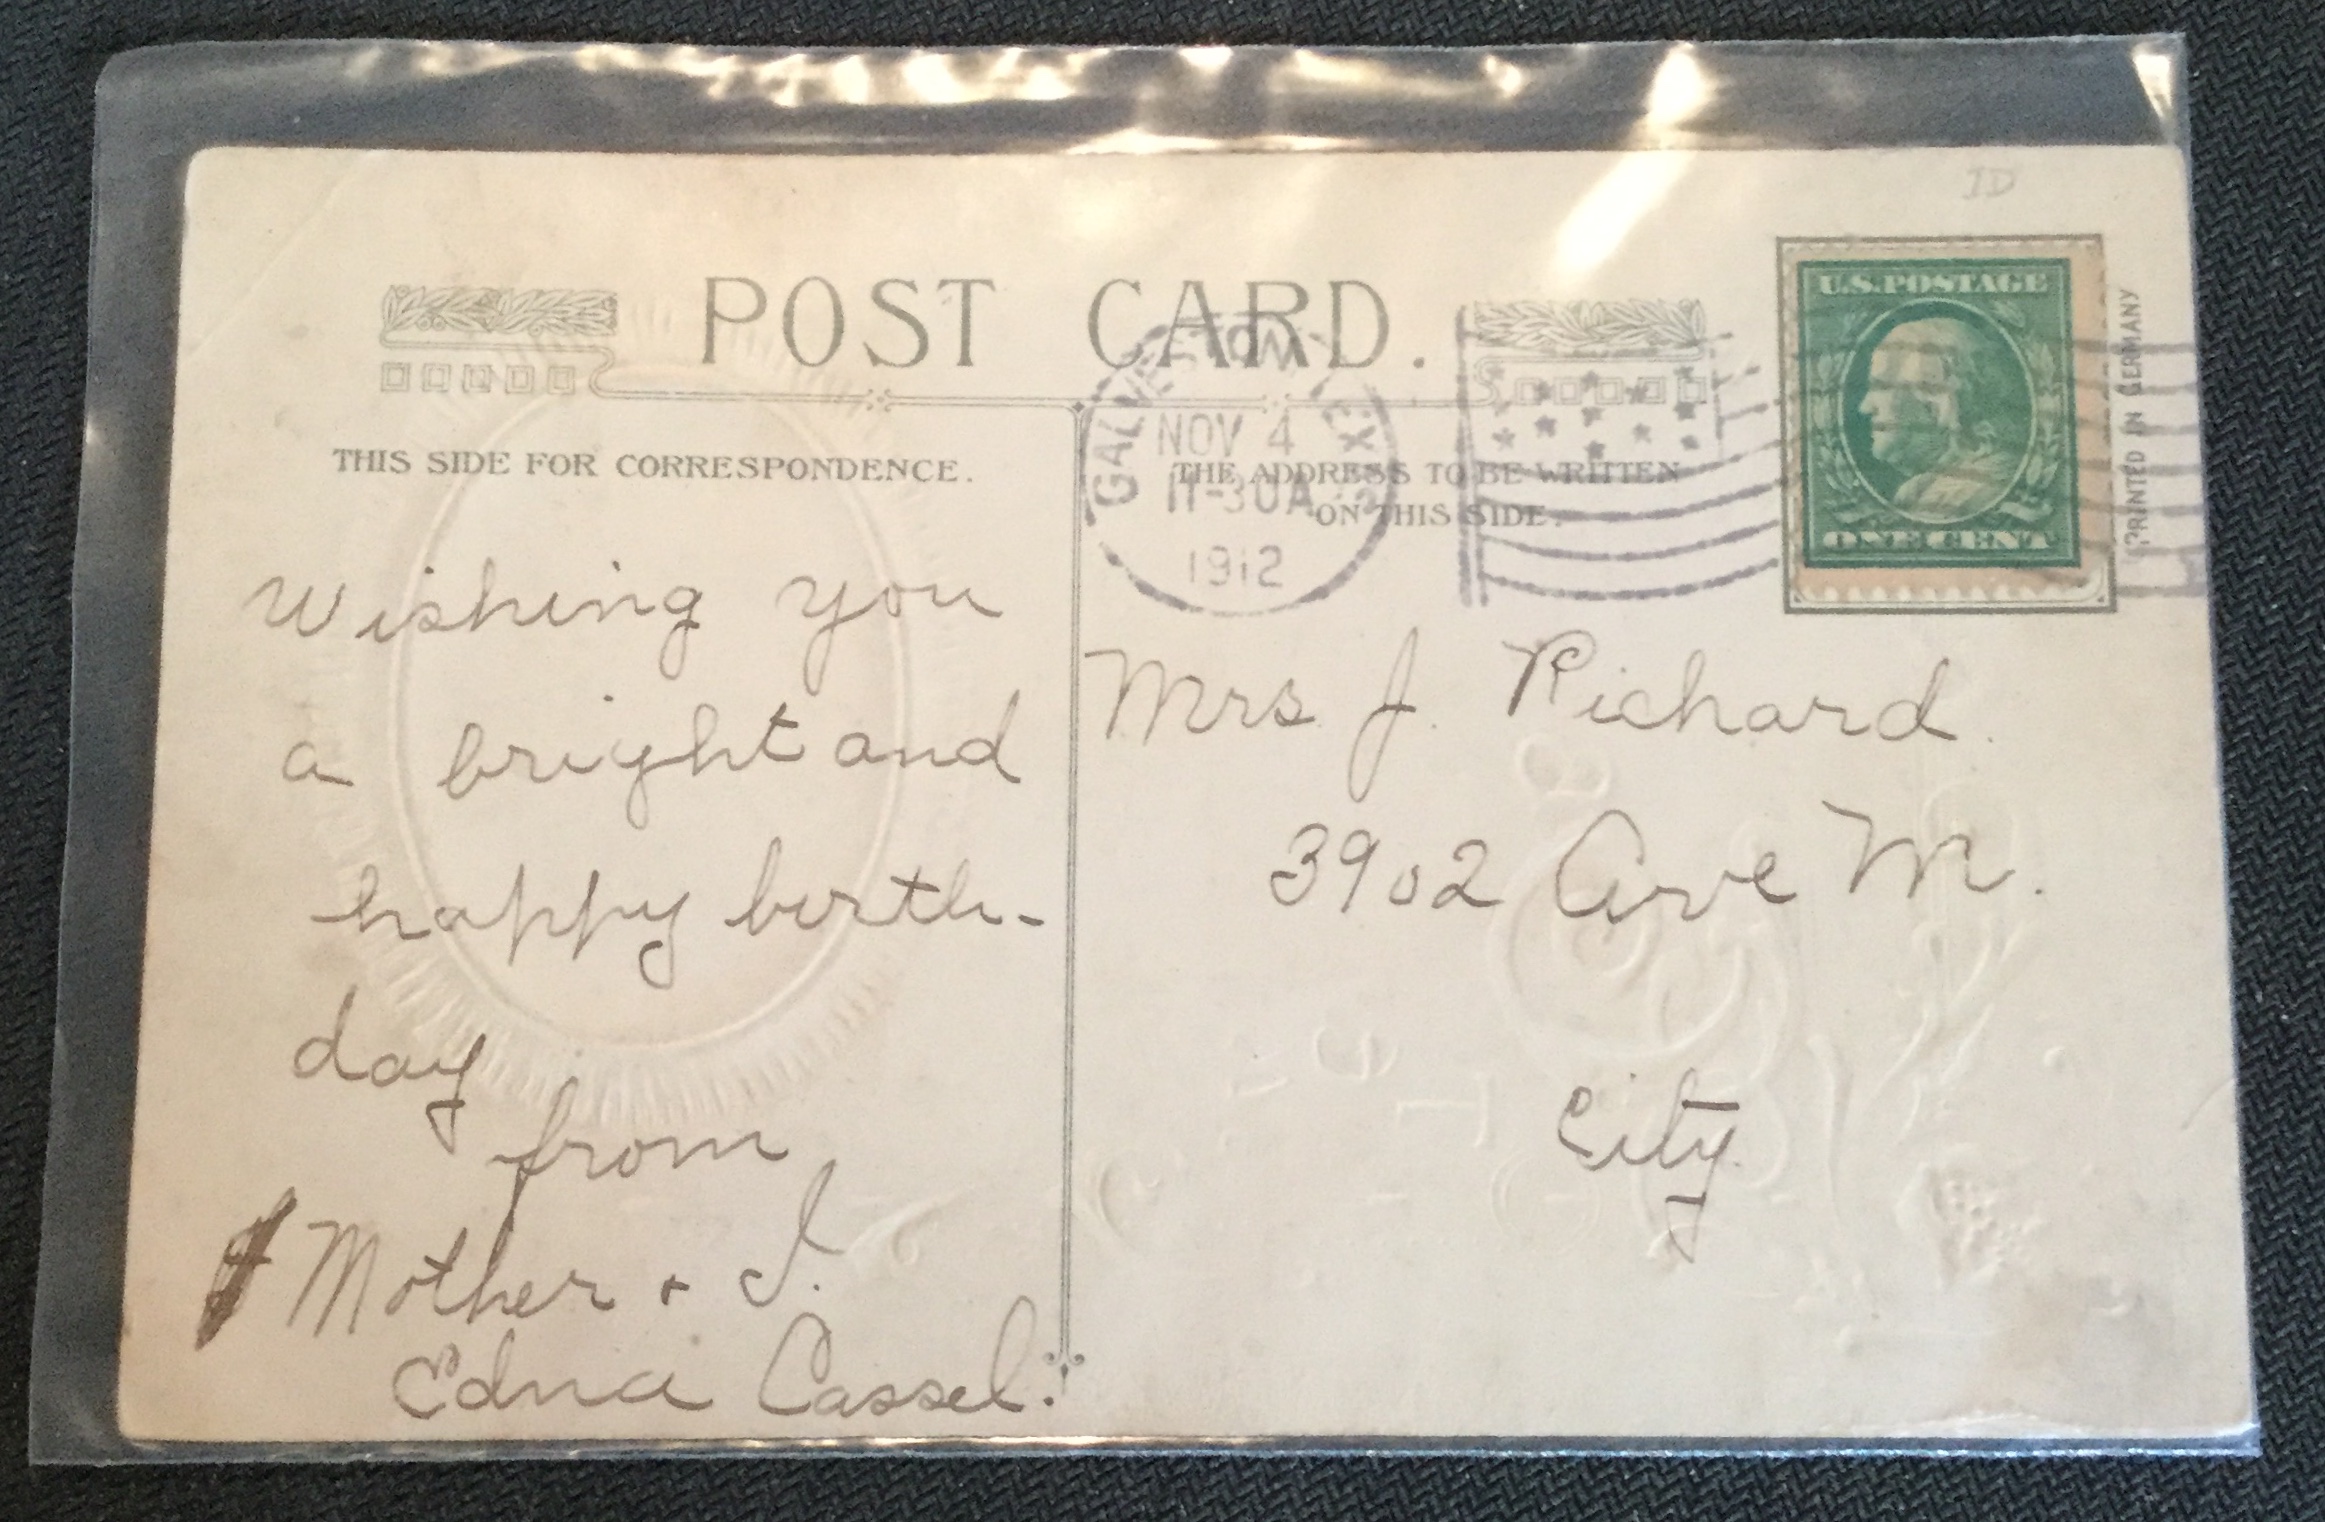 1D
POST CARD.
U.S. POSTAGE
ONE CENT
PRINTED IN GERMANY
GALVESTON TEX
NOV 4
11-30A
1912
THIS SIDE FOR CORRESPONDENCE.
THE ADDRESS TO BE WRITTEN
ON THIS SIDE.
Wishing you
a bright and
happy birth-
day
from
Mother + I.
Edna Cassel.
Mrs. J. Richard.
3902 Ave M.
City.